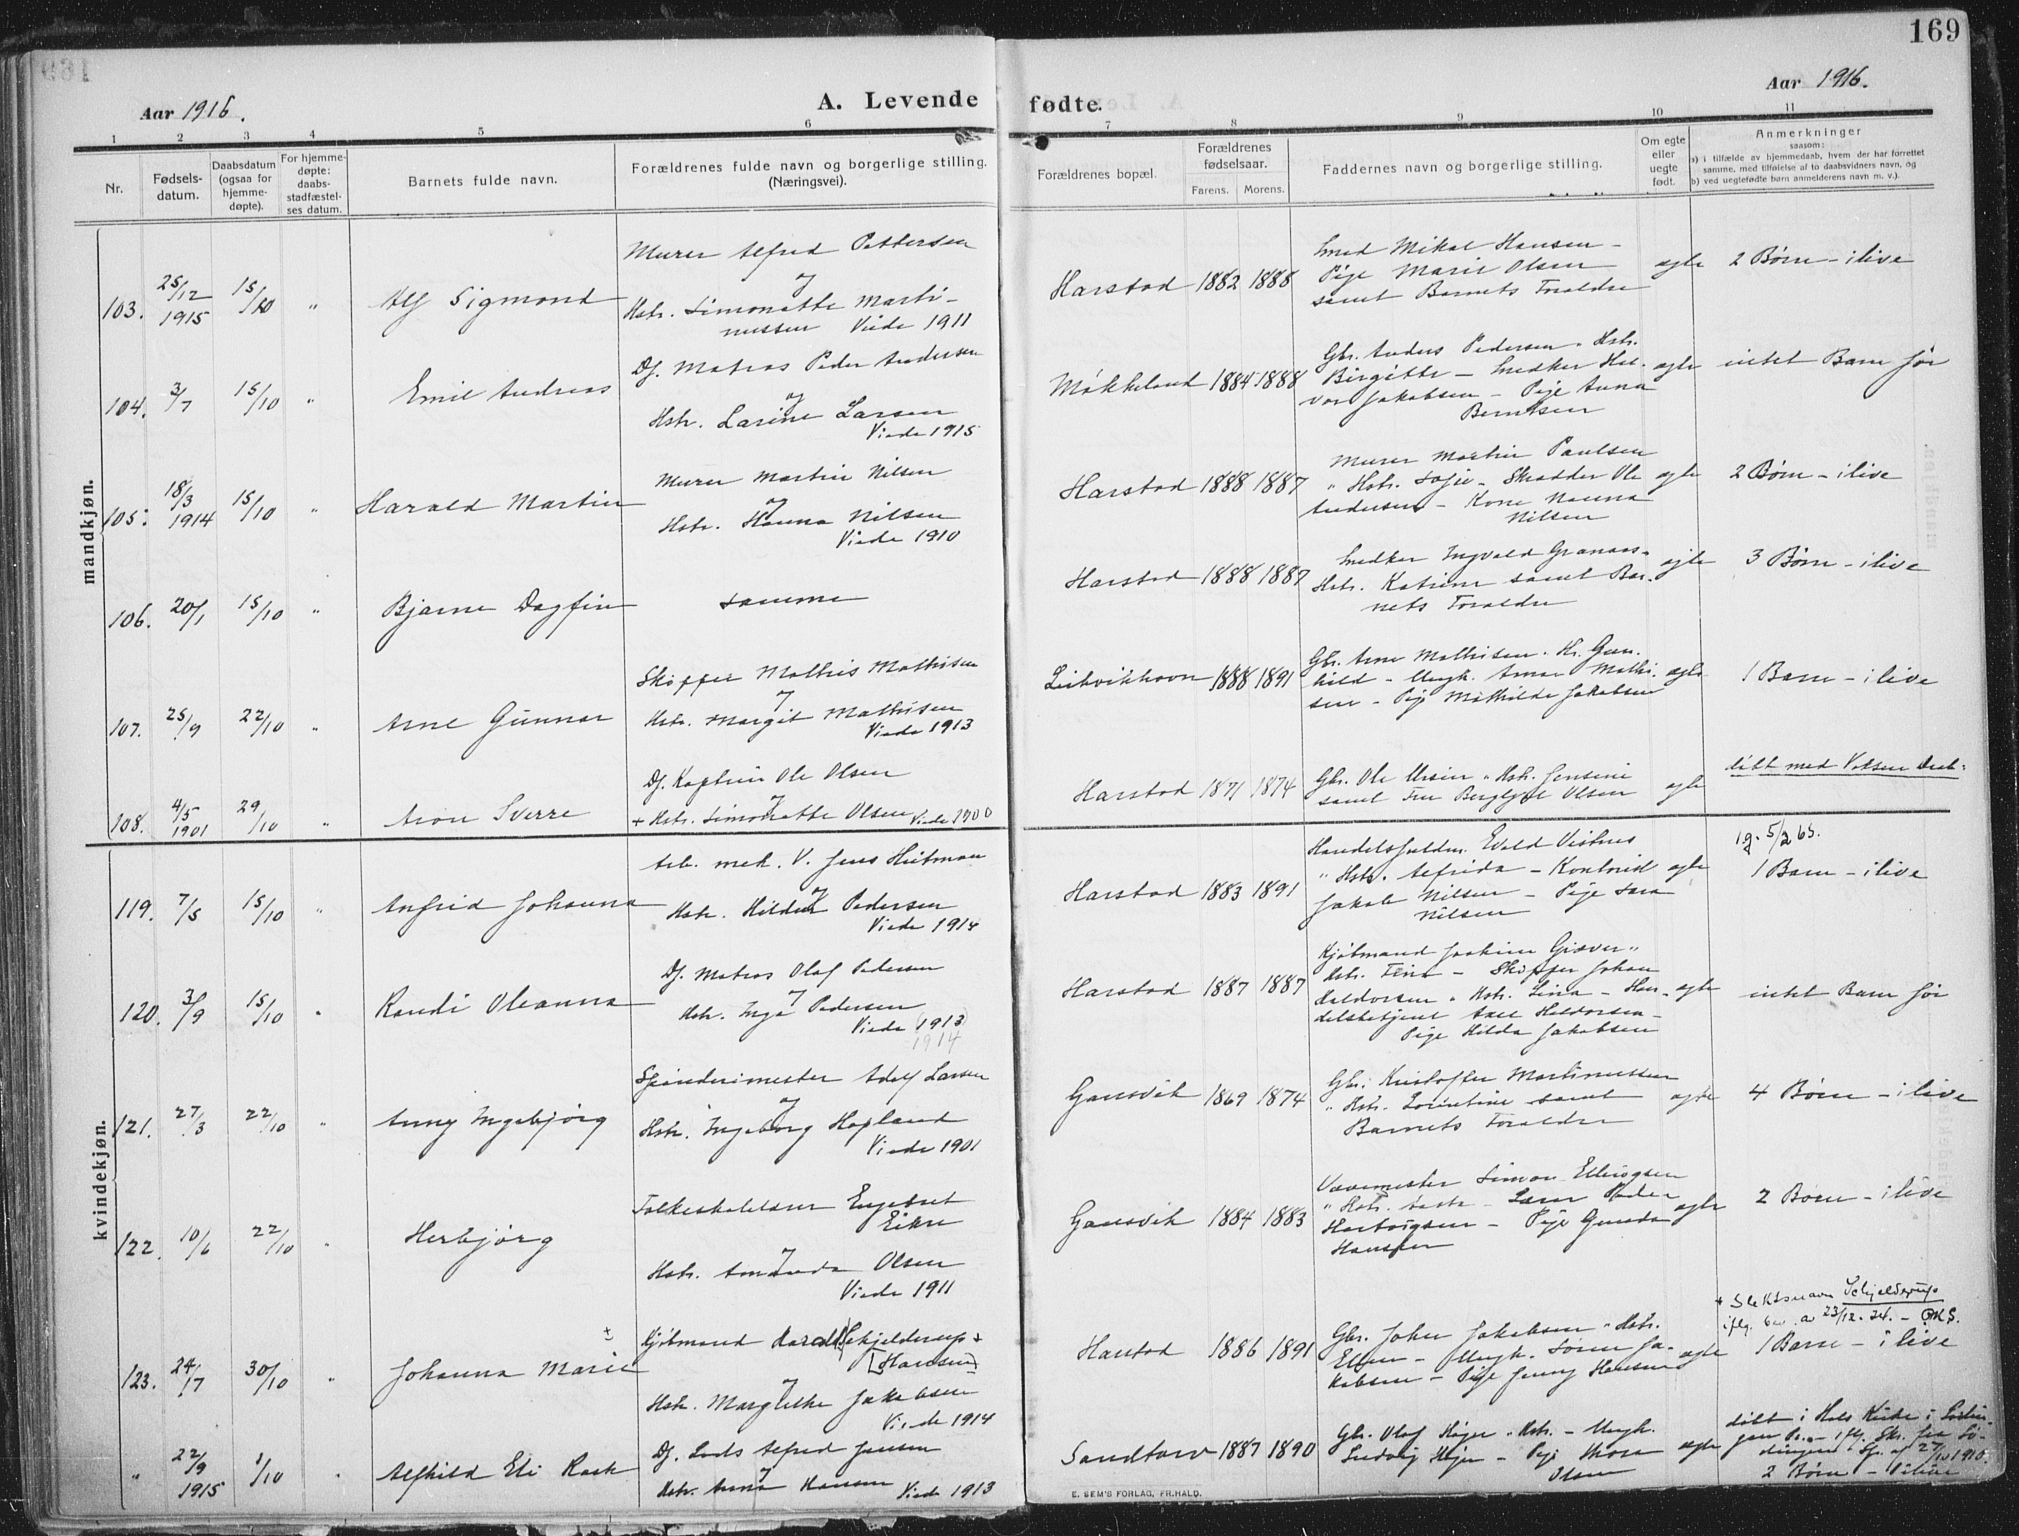 169
Aar 1916.
A. Levende fødte.
Aar 1916.
1 2 3 4 5 6 7 8 9 10 11
Nr.
Fødsels-
datum.
Daabsdatum
(ogsaa for
hjemme-
døpte).
For hjemme-
døpte:
daabs-
stadfæstel-
ses datum.
Barnets fulde navn.
Forældrenes fulde navn og borgerlige stilling.
(Næringsvei).
Forældrenes bopæl.
Forældrenes
fødselsaar.
Farens. Morens.
Faddernes navn og borgerlige stilling.
Om egte
eller
uegte
født.
Anmerkninger
saasom:
a) i tilfælde av hjemmedaab, hvem der har forrettet
samme, med tilføielse af to daabsvidners navn, og
b) ved uegtefødte børn anmelderens navn m. v.).
mandkjøn.
103. 25/12 1915 15/10 " Alf Sigmond
Murer Alfred Pettersen
og
Hstr. Simonette Marti-
nussen Viede 1911
Harstad 1882 1888
Smed Mikal Hansen -
Pige Marie Olsen
samt Barnets Foraldre
egte 2 Børn - ilive
104. 3/7 15/10 " Emil Andreas
Df. Matros Peder Andersen
og
Hstr. Larine Larsen
Viede 1915
Møkkeland 1884 1888
Gbr. Anders Pedersen " Hstr.
Birgitte - Snedker Hal-
vor Jakobsen - Pige Anna
Berntsen
egte intet Barn før
105. 18/3 1914 15/10 " Harald Martin
Murer Martin Nilsen
og
Hstr. Hanna Nilsen
Viede 1910
Harstad 1888 1887
Murer Martin Paulsen
" Hstr. Sofie - Skrædder Ole
Andersen - Kone Nanna
Nilsen
egte 2 Børn - ilive
106. 20/1 15/10 " Bjarne Dagfin
samme
Harstad 1888 1887
Snedker Ingvald Granaas -
Hstr. Katrine samt Bar-
nets Foraldre
egte 3 Børn - ilive
107. 25/9 22/10 " Arne Gunnar
Skipper Mathis Mathisen
og
Hstr. Margit Mathisen
Viede 1913
1888 1891
Gbr. Arne Mathisen. Hr. Gun-
hild - Ungk. Mathi-
sen - Pige Mathilde Jakobsen
egte 1 Barn - ilive
108. 4/5 1901 29/10 " Aron Sverre
Df. Kaptein Ole Olsen
og
+ Hstr. Simonette Olsen Viede 1900
Harstad 1871 1874
Gbr. Ole Ursin " Hstr. Jensine
samt Fru Bergljot Olsen
egte
kvindekjøn.
119. 7/5 15/10 " Anfrid Johanna
Arb. mek. V. Jens Heitman
og
Hstr. Pedersen
Viede 1914
Harstad 1883 1891
Evald Vistnes
" Hstr. Alfrida - Kontorist
Jakob Nilsen - Pige Sara
Nilsen
egte 1 Barn - ilive
120. 3/9 15/10 " Randi Oleanna
Df. Matros Olaf Pedersen
og
Hstr. Inga Pedersen
Viede (1913)
1914
Harstad 1887 1887
Kjøbmand Joakim Giæver "
Hstr. Tina - Skipper Johan
Haldorsen " Hstr. Lina - Han-
delsbetjent Axel Haldorsen -
Pige Hilda Jakobsen
egte intet Barn før
121. 27/3 22/10 " Anny Ingebjørg
Spinderimester Adolf Larsen
og
Hstr. Ingeborg Hopland
Viede 1901
Gansvik 1869 1874
Gbr. Kristoffer Martinussen
" Hstr. samt
Barnets Foraldre
egte 4 Børn - ilive
122. 10/6 22/10 " Herbjørg
Engebret
Eikre
og
Hstr. Amanda Olsen
Viede 1911
Gansvik 1884 1883
Vævemester Simon Ellingsen
" Hstr. - Lærer Peder
- Pige Gunda
Hanssen
egte 2 Børn - ilive
123. 24/7 30/10 " Johanna Marie
Kjøbmand Harald Schjelderup +
[Hansen]
og
Hstr. Margrethe Jakobsen
Viede 1914
Harstad 1886 1891
Gbr. Johan Jakobsen " Hstr.
Ellen - Ungk. Søren Ja-
kobsen - Pige Jenny Hansen
egte
+ Slektsnavn Schjelderup
iflg. bev. a 23/12.24.
1 Barn - ilive
" 22/9 1915 1/10 " Alfhild Eli Rask
Df. Lods Alfred Jensen
og
Hstr. Anna Hansen Viede 1913
Sandtorv 1887 1890
Gbr. Olaf Høyer " Hstr. - Ungk.
Ludvig Høyer - Pige Thora
Olsen
egte
døbt i Hols Kirke i
27/10 1915.
2 Børn - ilive
E. SEM'S FORLAG, FR.HALD.